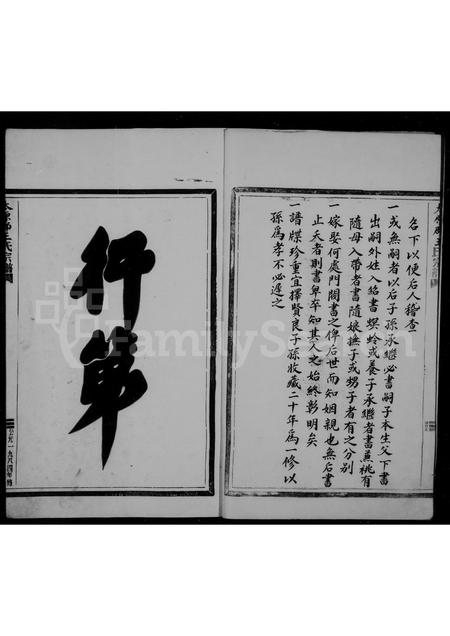 名下以便后人稽查
一或無嗣者以后子孫承繼必書嗣子本生父下書
出嗣外姓入紹書螟蛉或養子承繼者書兼祧有
隨母入帶者書隨娘撫子或甥子者有之分别
一嫁娶何處門閥書之俾后世而知姻親也無后書
止夭者則書卑卒知其人之始終彰明矣
一譜牒珍重宜擇賢良子孫收藏二十年爲一修以
孫爲孝不必遲之
行第
王氏宗譜
公元一九八四年修
FamilySearch